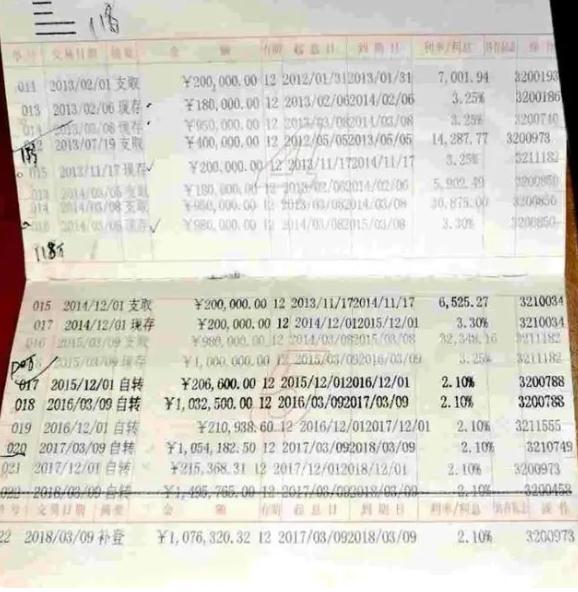 118
单号 交易日期 摘要 金 额 存期 起息日 到期日 利率/利息 操作
011 2013/02/01 支取 ¥200,000.00 12 2012/01/31 2013/01/31 7,001.94 3200193
013 2013/02/06 现存 ¥180,000.00 12 2013/02/06 2014/02/06 3.25% 3200186
014 2013/03/08 现存 ¥950,000.00 12 2013/03/08 2014/03/08 3.25% 3200740
2013/07/19 支取 ¥400,000.00 12 2012/05/05 2013/05/05 14,287.77 3200973
015 2013/11/17 现存 ¥200,000.00 12 2013/11/17 2014/11/17 3.25% 3211182
013 2014/03/08 支取 ¥180,000.00 12 2013/02/06 2014/02/06 3200850
014 2014/03/08 支取 ¥950,000.00 12 2013/03/08 2014/03/08 30,875.00 3200850
016 2014/03/08 现存 ¥980,000.00 12 2014/03/08 2015/03/08 3.30% 3200850
118万
015 2014/12/01 支取 ¥200,000.00 12 2013/11/17 2014/11/17 6,525.27 3210034
017 2014/12/01 现存 ¥200,000.00 12 2014/12/01 2015/12/01 3.30% 3210034
016 2015/03/09 支取 ¥980,000.00 12 2014/03/08 2015/03/08 3211182
2015/03/09 现存 ¥1,000,000.00 12 2015/03/09 2016/03/09 3.25% 3211182
017 2015/12/01 自转 ¥206,600.00 12 2015/12/01 2016/12/01 2.10% 3200788
018 2016/03/09 自转 ¥1,032,500.00 12 2016/03/09 2017/03/09 2.10% 3200788
019 2016/12/01 自转 ¥210,938.60 12 2016/12/01 2017/12/01 2.10% 3211555
020 2017/03/09 自转 ¥1,054,182.50 12 2017/03/09 2018/03/09 2.10% 3210749
021 2017/12/01 自转 ¥215,368.31 12 2017/12/01 2018/12/01 2.10% 3200973
020 2018/03/09 自转 ¥1,495,765.00 12 2017/03/09 2018/03/09 2.10% 3200458
单号 交易日期 摘要 金 额 存期 起息日 到期日 利率/利息 操作
22 2018/03/09 补登 ¥1,076,320.32 12 2017/03/09 2018/03/09 2.10% 3200973